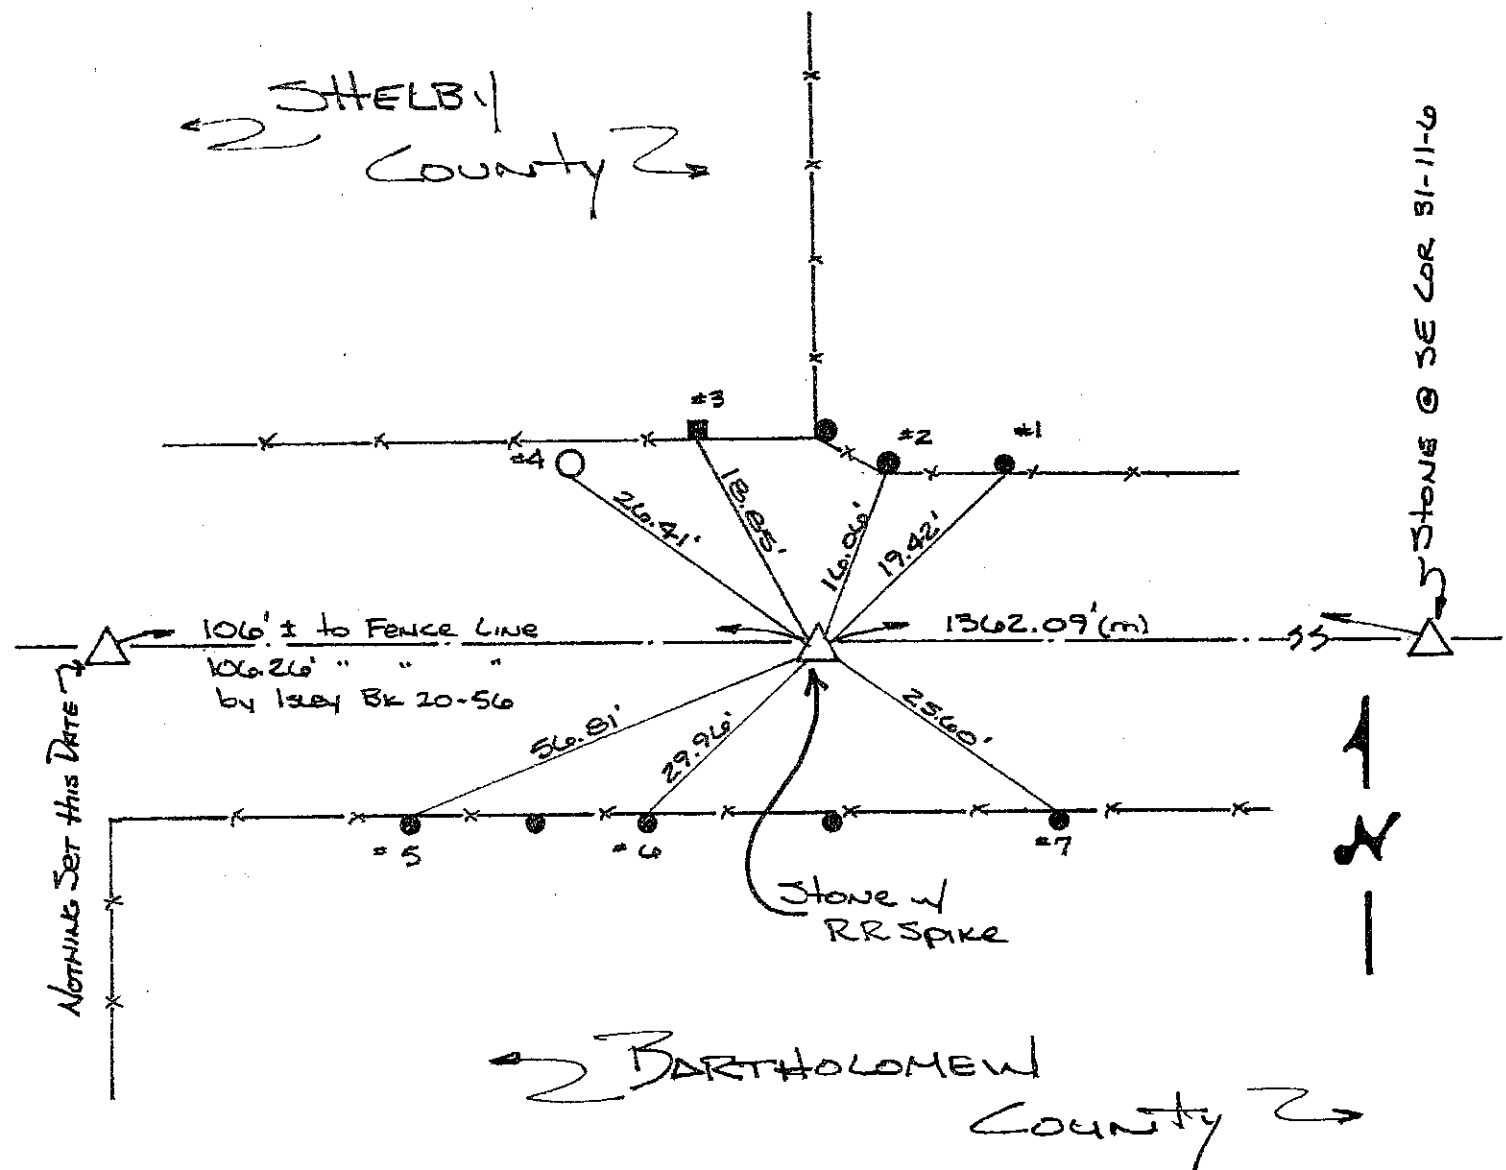 SHELBY
COUNTY
STONE @ SE COR 31-11-6
#3
#2
#1
#4
26.41'
18.85'
16.06'
19.42'
106' ± to FENCE LINE
106.26' " " "
by Isley BK 20-56
1362.09'(m)
56.81'
29.96'
25.60'
NOTHING SET this DATE
#5
#6
#7
STONE w/
RR SPIKE
N
BARTHOLOMEW
COUNTY